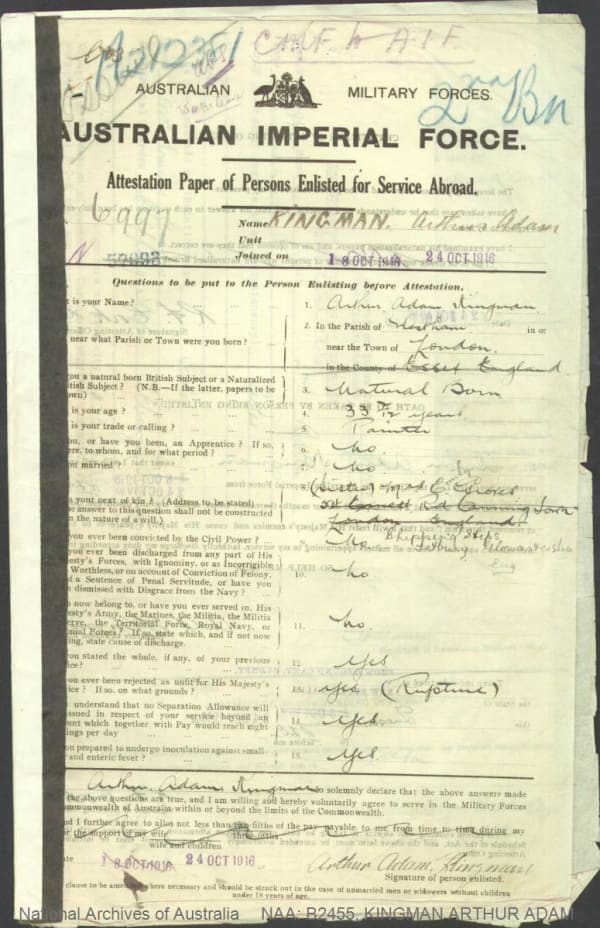 C.M.F. to A.I.F.
AUSTRALIAN MILITARY FORCES.
2nd Bn
AUSTRALIAN IMPERIAL FORCE.
Attestation Paper of Persons Enlisted for Service Abroad.
6997
Name KINGMAN. Arthur Adam
Unit
Joined on 18 OCT 1916 24 OCT 1916
N
Questions to be put to the Person Enlisting before Attestation.
t is your Name? 1. Arthur Adam Kingman.
2. In the Parish of Westham in or
near what Parish or Town were you born? near the Town of London,
in the County of Essex England
ou a natural born British Subject or a Naturalized
itish Subject? (N.B.—If the latter, papers to be
own) 3. Natural Born
is your age? 4. years
is your trade or calling? 5. Painter
ou, or have you been, an Apprentice? If so,
ere, to whom, and for what period? 6. No.
ou married? 7. No.
8. (Sister) Mrs E.
your next of kin? (Address to be stated)
e answer to this question shall not be constructed Rd Canning Town
n the nature of a will.) London England.
ou ever been convicted by the Civil Power? 9. No Chipping
ou ever been discharged from any part of His
esty's Forces, with Ignominy, or as Incorrigible
Worthless, or on account of Conviction of Felony,
f a Sentence of Penal Servitude, or have you
dismissed with Disgrace from the Navy? 10. No
Eng
now belong to, or have you ever served in, His
esty's Army, the Marines, the Militia, the Militia
erve, the Territorial Force, Royal Navy, or
nial Forces? If so, state which, and if not now
ing, state cause of discharge. 11. No.
you stated the whole, if any, of your previous
ice? 12. Yes
ou ever been rejected as unfit for His Majesty's
vice? If so, on what grounds? 13. Yes (Rupture)
understand that no Separation Allowance will
issued in respect of your service beyond an
unt which together with Pay would reach eight
ings per day 14. Yes.
ou prepared to undergo inoculation against small-
and enteric fever? 15. Yes.
Arthur Adam Kingman do solemnly declare that the above answers made
the above questions are true, and I am willing and hereby voluntarily agree to serve in the Military Forces
mmonwealth of Australia within or beyond the limits of the Commonwealth.
nd I further agree to allot not less than two-fifths of the pay payable to me from time to time during my
or the support of my wife
three-fifths
wife and children
ate 18 OCT 1916 24 OCT 1916 Arthur Adam Kingman
Signature of person enlisted.
clause to be amended where necessary and should be struck out in the case of unmarried men or widowers without children
under 18 years of age.
National Archives of Australia NAA: B2455, KINGMAN ARTHUR ADAM